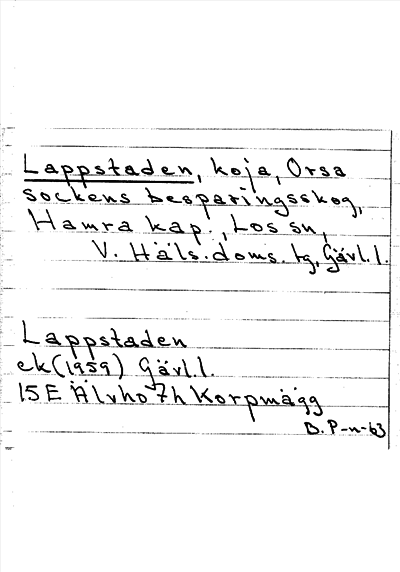 Lappstaden, koja, Orsa
sockens besparingsskog,
Hamra kap., Los sn,
V. Häls. doms. tg, Gävl. l.
Lappstaden
ek (1959) Gävl. l.
15E Älvho 7h Korpmägg
B. P-n-63